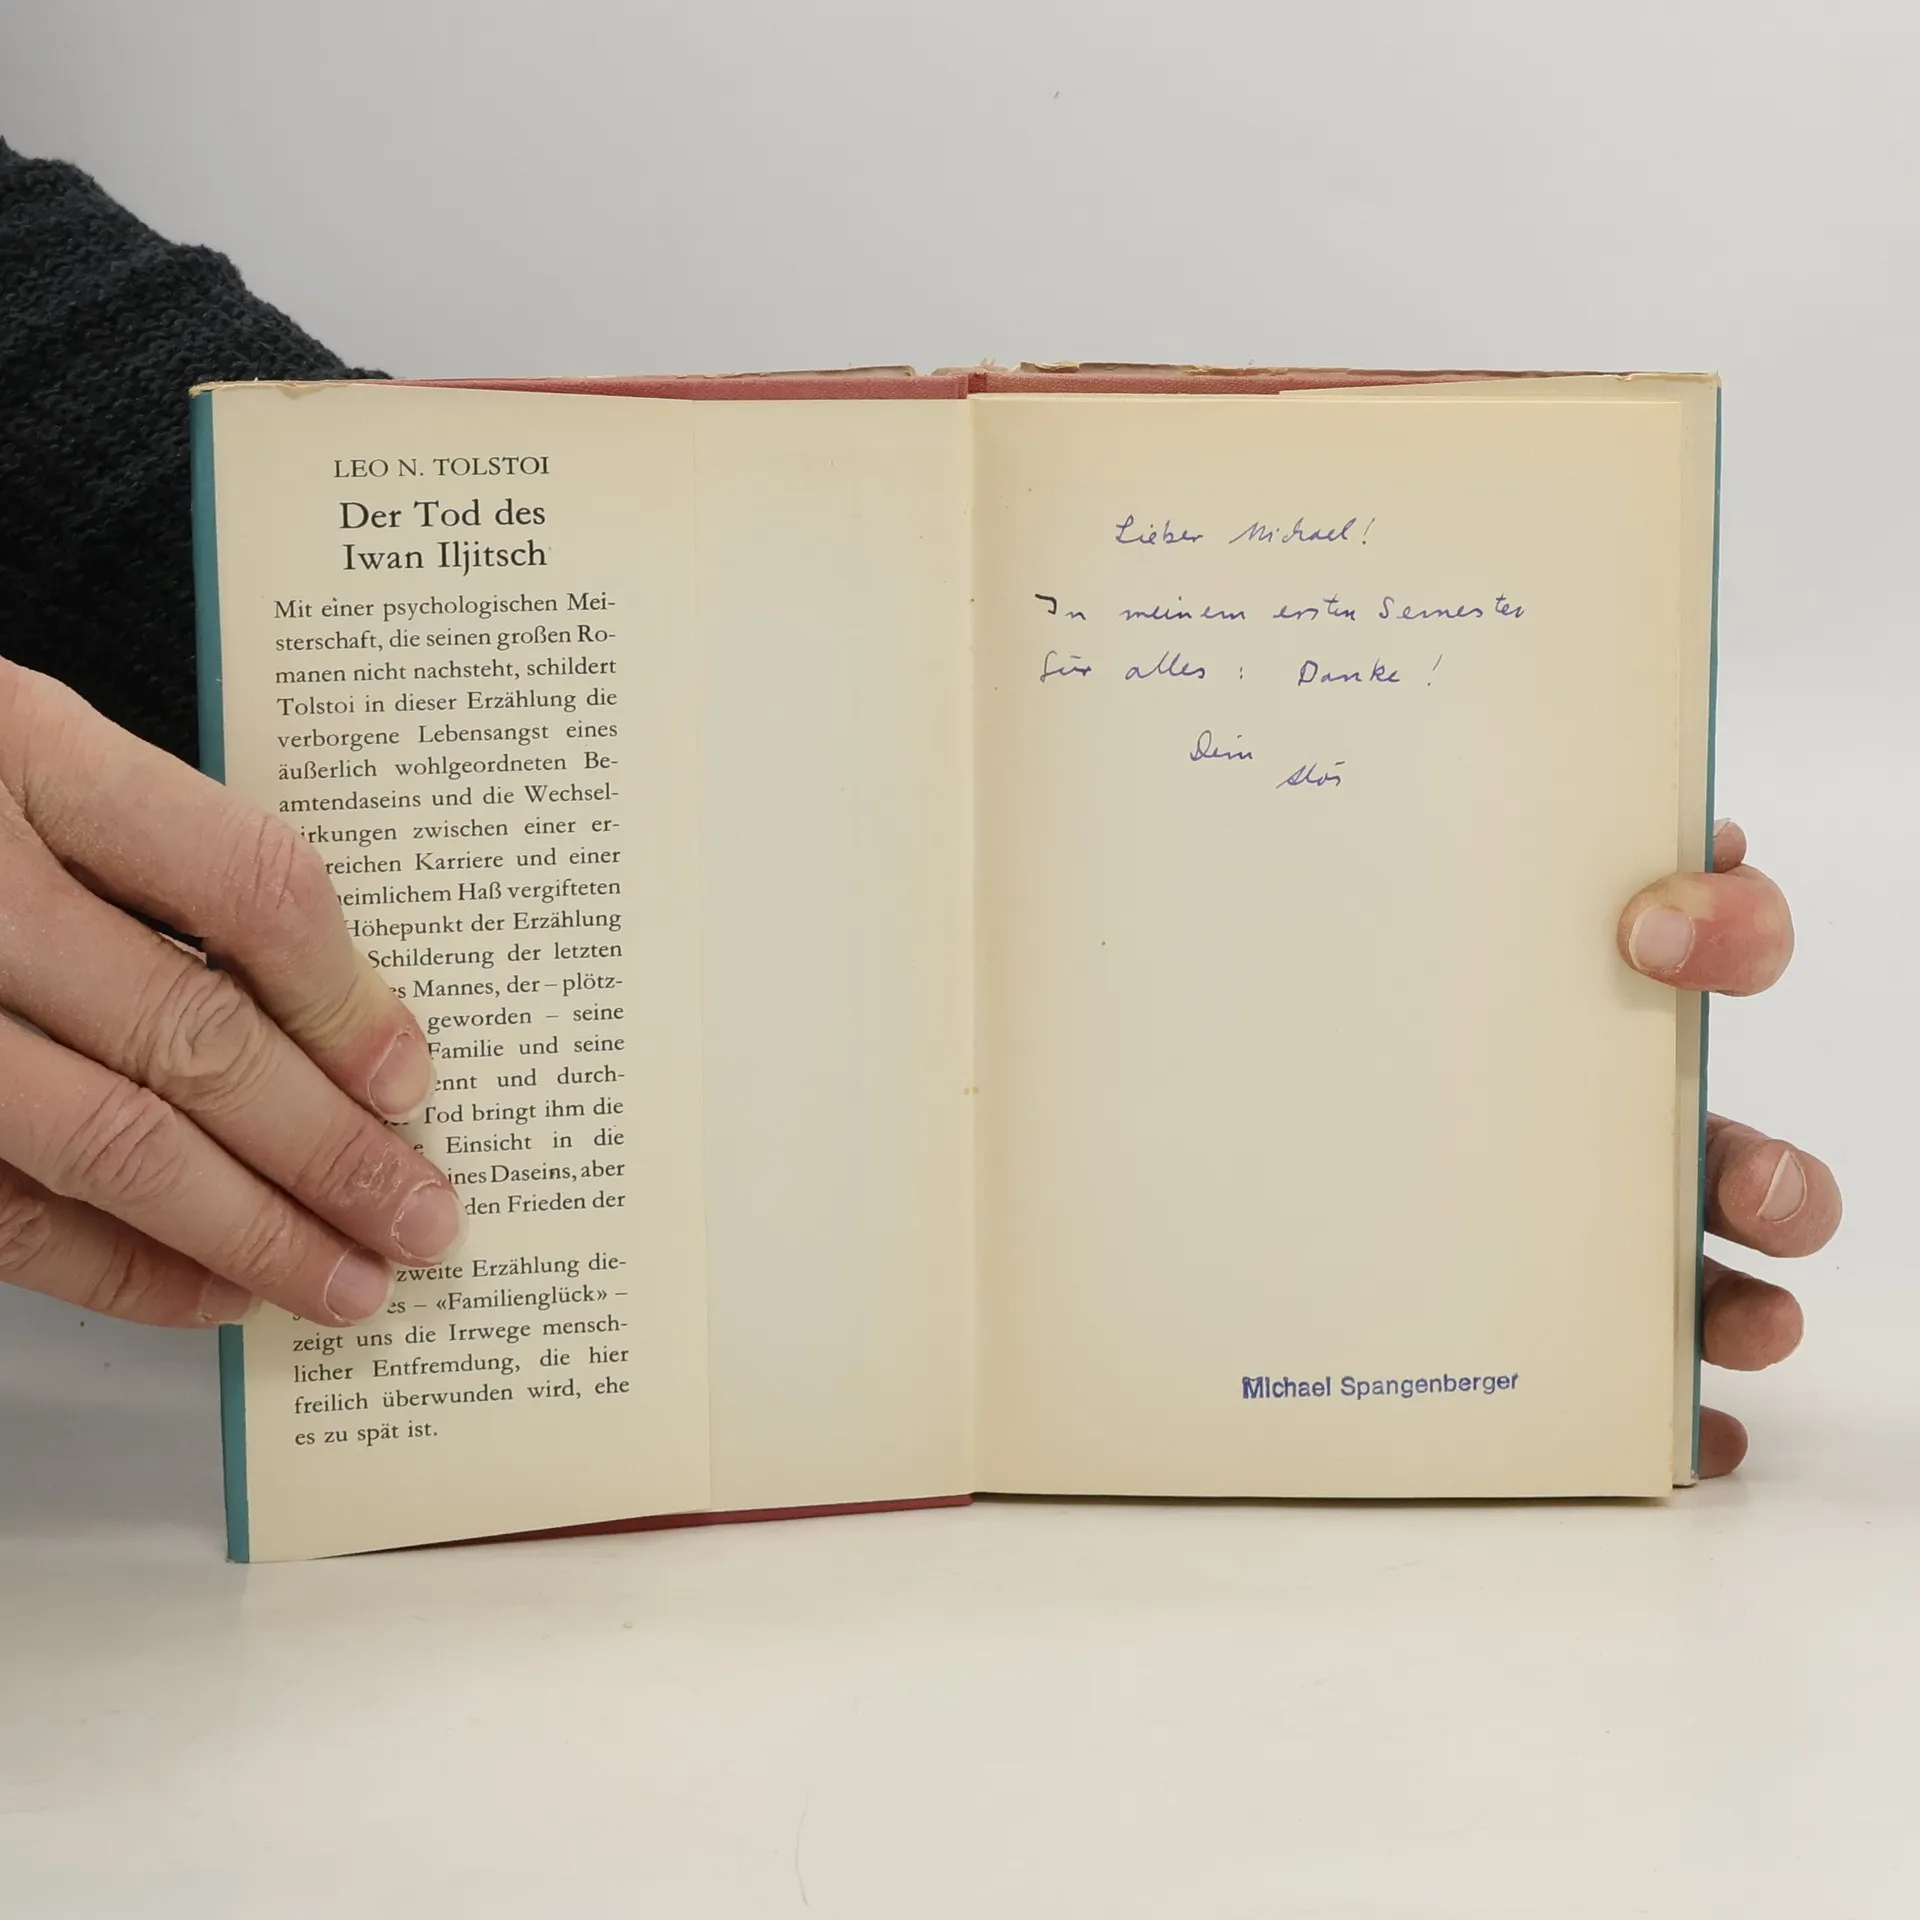 LEO N. TOLSTOI
Der Tod des
Iwan Iljitsch
Mit einer psychologischen Mei-
sterschaft, die seinen großen Ro-
manen nicht nachsteht, schildert
Tolstoi in dieser Erzählung die
verborgene Lebensangst eines
äußerlich wohlgeordneten Be-
amtendaseins und die Wechsel-
irkungen zwischen einer er-
reichen Karriere und einer
heimlichem Haß vergifteten
Höhepunkt der Erzählung
Schilderung der letzten
es Mannes, der – plötz-
geworden – seine
Familie und seine
ennt und durch-
Tod bringt ihm die
Einsicht in die
ines Daseins, aber
den Frieden der
zweite Erzählung die-
es – «Familienglück» –
zeigt uns die Irrwege mensch-
licher Entfremdung, die hier
freilich überwunden wird, ehe
es zu spät ist.
Lieber Michael!
In meinem ersten Semester
für alles : Danke !
Dein
Michael Spangenberger